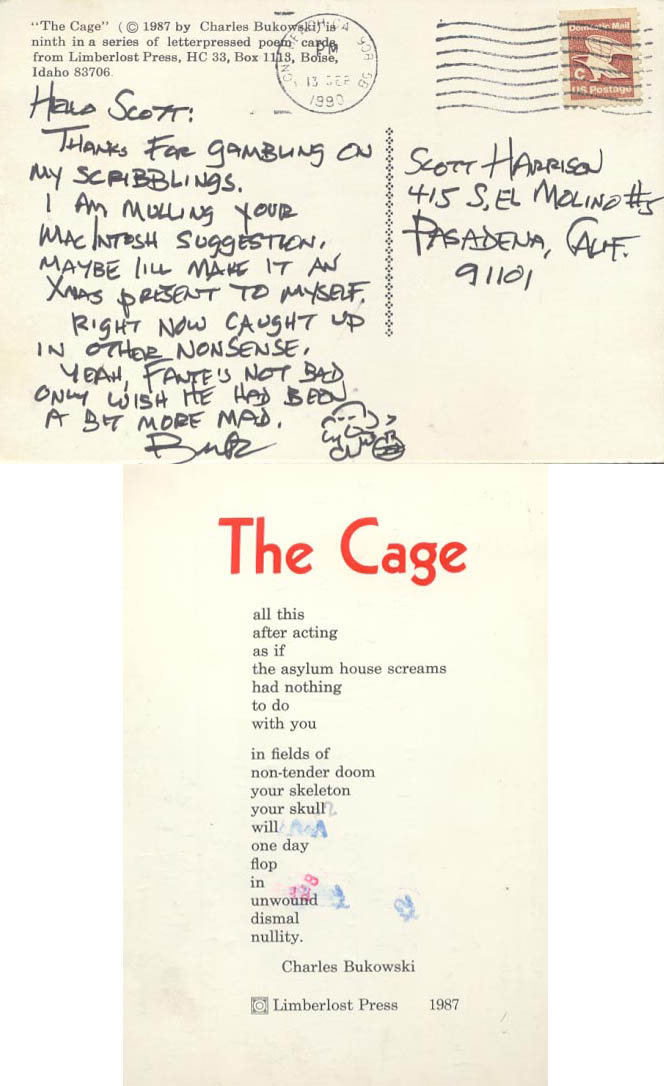 "The Cage" (© 1987 by Charles Bukowski) is
ninth in a series of letterpressed poem cards
from Limberlost Press, HC 33, Box 1113, Boise,
Idaho 83706.
PM
13 SEP
1990
Domestic Mail
C
US Postage
HELLO SCOTT:
THANKS FOR GAMBLING ON
MY SCRIBBLINGS.
I AM MULLING YOUR
MACINTOSH SUGGESTION.
MAYBE I'LL MAKE IT AN
XMAS PRESENT TO MYSELF.
RIGHT NOW CAUGHT UP
IN OTHER NONSENSE.
YEAH, FANTE'S NOT BAD
ONLY WISH HE HAD BEEN
A BIT MORE MAD.
Buk
SCOTT HARRISON
415 S. EL MOLINO #5
PASADENA, CALIF.
91101
The Cage
all this
after acting
as if
the asylum house screams
had nothing
to do
with you
in fields of
non-tender doom
your skeleton
your skull
will
one day
flop
in
unwound
dismal
nullity.
Charles Bukowski
Limberlost Press 1987